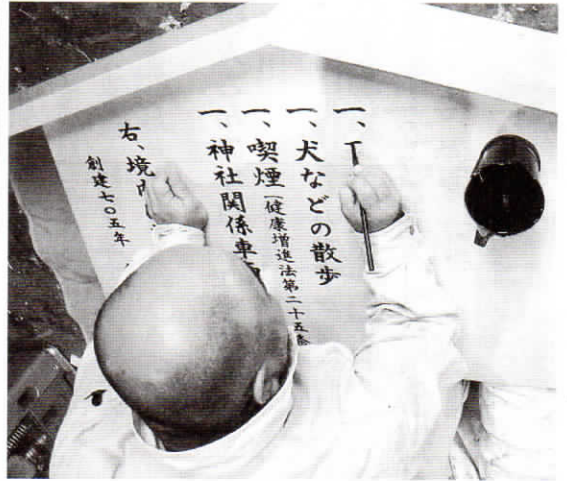 一、
一、犬などの散歩
一、喫煙（健康増進法第二十五条
一、神社関係車
右、境
創建七〇五年